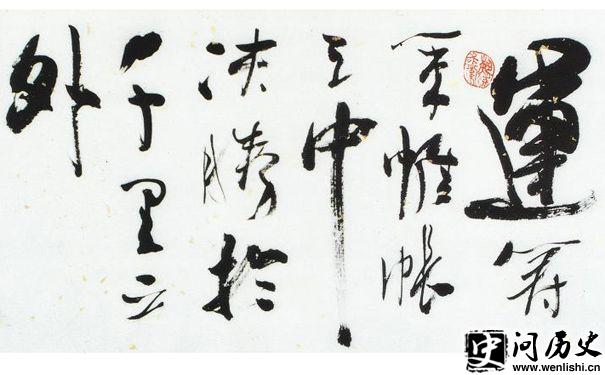 運籌
策帷帳
之中
决勝於
千里之
外
史 问历史
www.wenlishi.cn